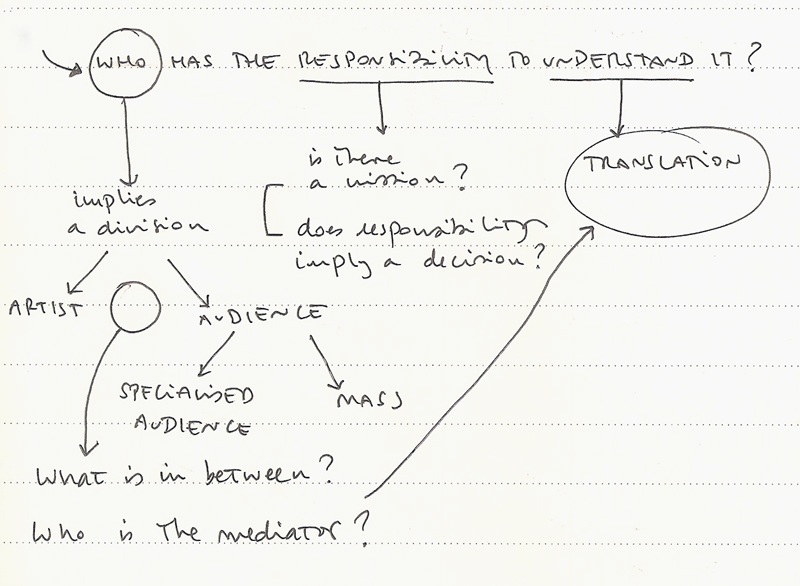 WHO HAS THE RESPONSIBILITY TO UNDERSTAND IT?
is there
a mission?
does responsibility
imply a decision?
TRANSLATION
implies
a division
ARTIST
AUDIENCE
SPECIALISED
AUDIENCE
MASS
What is in between?
Who is the mediator?